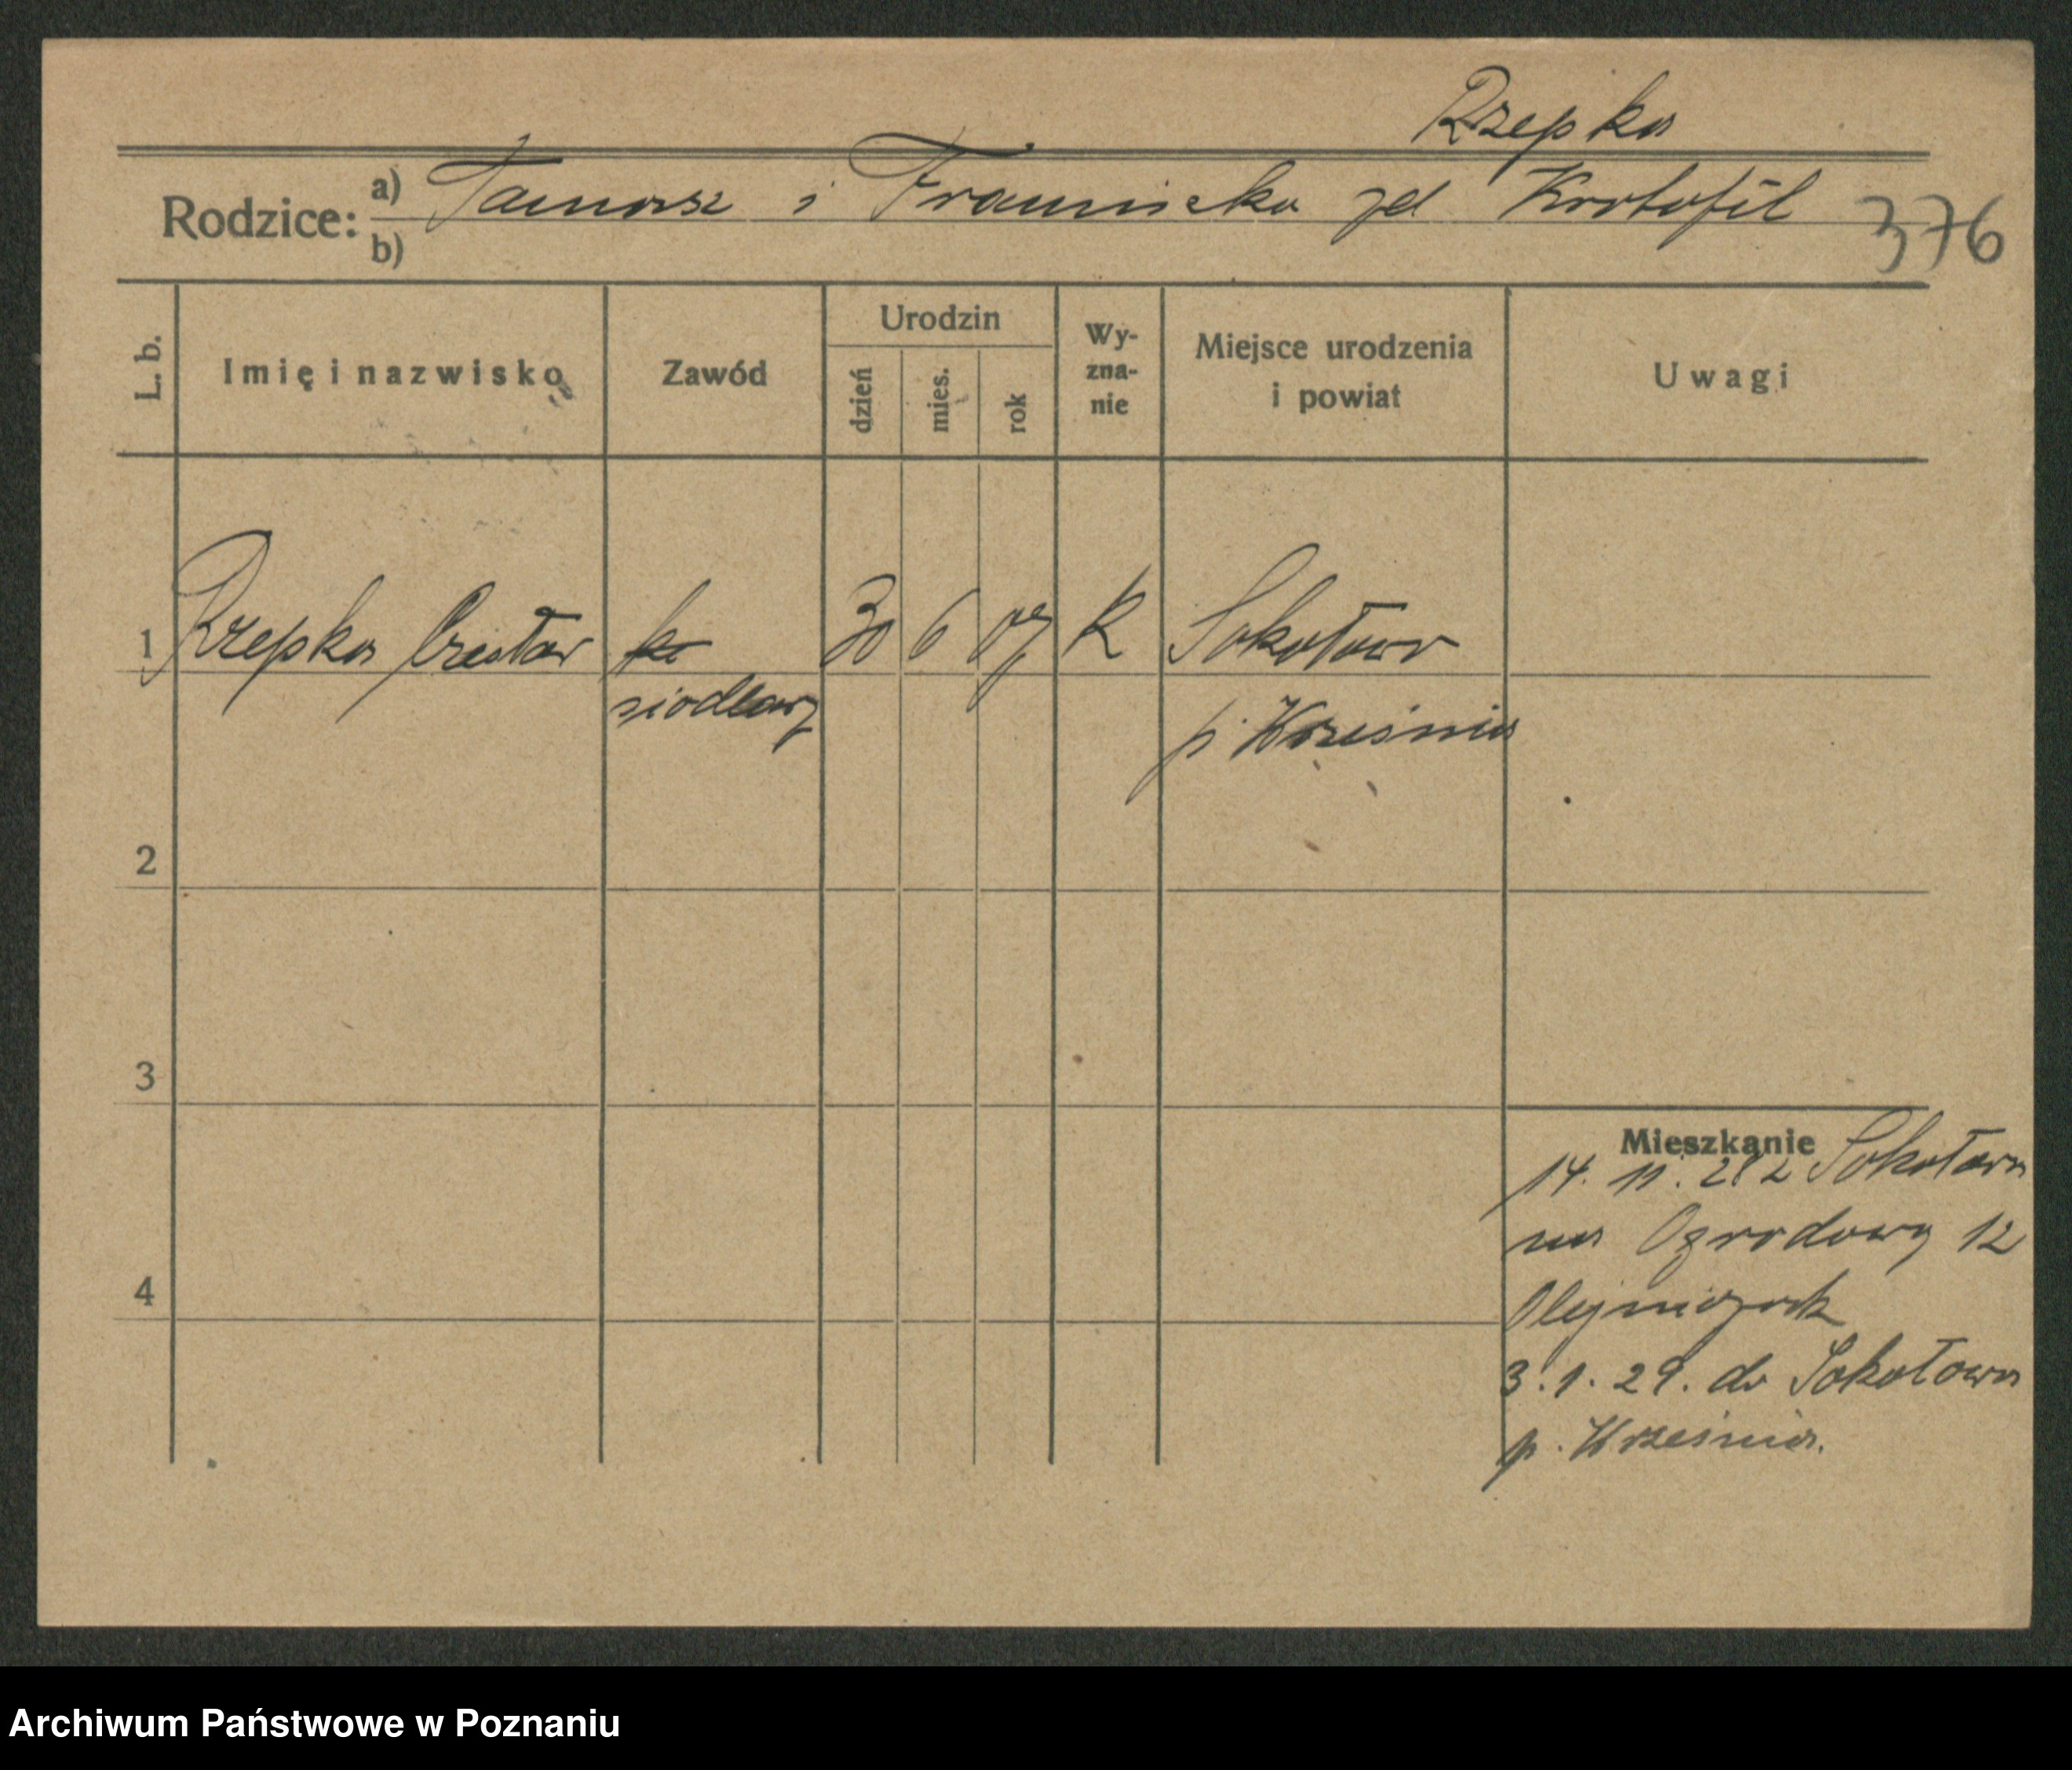 Rzepka
Rodzice: a) Tomasz i Franciszka zd Kortofil
b)
376
L. b.
Imię i nazwisko
Zawód
Urodzin
dzień
mies.
rok
Wy-
zna-
nie
Miejsce urodzenia
i powiat
Uwagi
1 Rzepka Czesław
30 6 07 K Sokołowo
siodlarz
p. Września
2
3
4
Mieszkanie
14. 11. 28 z Sokołowa
na Ogrodową 12
Olejniczak
3. 1. 29. do Sokołowa
p. Września.
Archiwum Państwowe w Poznaniu